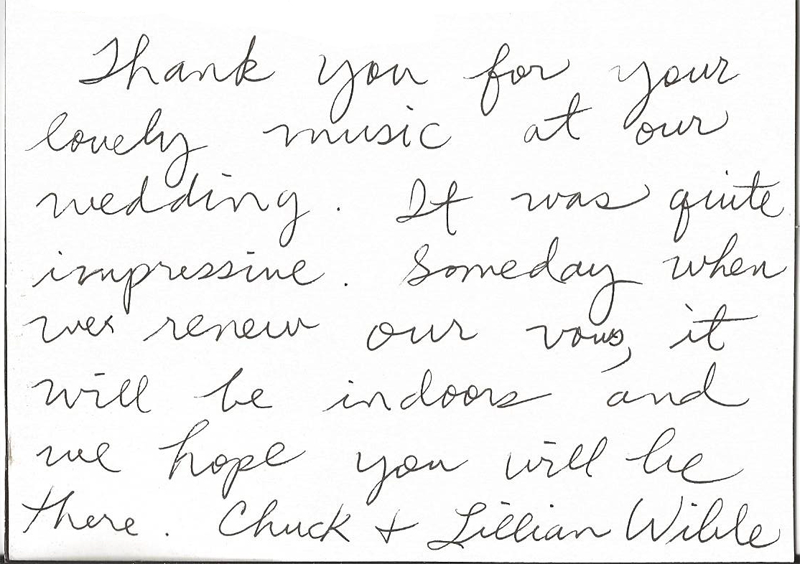 Thank you for your
lovely music at our
wedding. It was quite
impressive. Someday when
we renew our vows, it
will be indoors and
we hope you will be
there. Chuck + Lillian